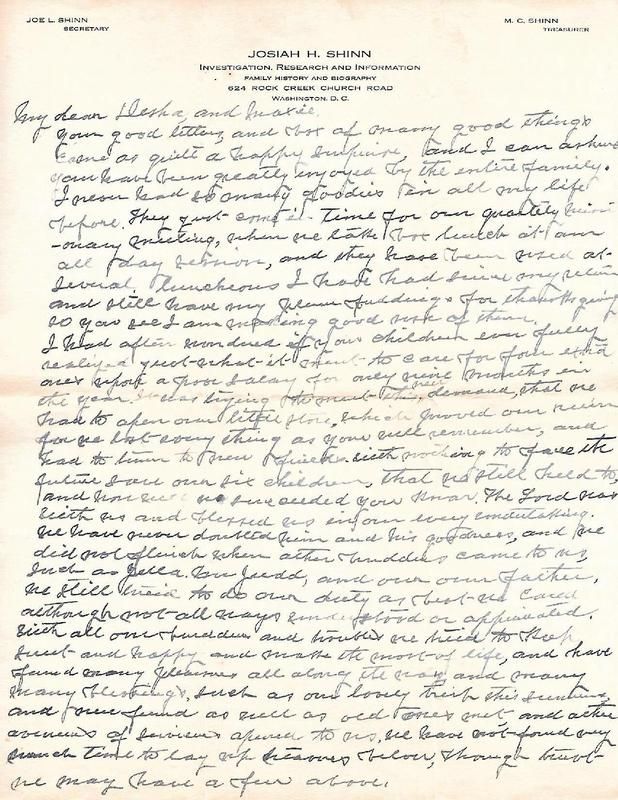 JOE L. SHINN
SECRETARY
M. C. SHINN
TREASURER
JOSIAH H. SHINN
INVESTIGATION, RESEARCH AND INFORMATION
FAMILY HISTORY AND BIOGRAPHY
624 ROCK CREEK CHURCH ROAD
WASHINGTON, D. C.
My dear Desha, and Maxie.
Your good letters, and box of many good things
came as quite a happy surprise, and I can assure
you have been greatly enjoyed by the entire family.
I never had so many goodies in all my life
before. They just come in time for our quartely
-onary meeting, when we take box lunch at an
all day session, and they have been used at
several luncheons I have had since my return
and still have my plum puddings for thanksgiving
so you see I am making good use of them.
I had often wondered if your children ever fully
realized just what it meant to care for four extra
ones upon a poor salary for only nine months in
the year, It was trying to meet this new demand, that we
had to open our little store, which proved our ruin
for we lost every thing as you will remember, and
had to turn to new fields with nothing to face the
future save our six children, that we still held to,
and how well we succeeded you know. The Lord was
with us and blessed us in our every undertaking.
We have never doubted him and his goodness, and we
did not flinch when other burdens came to us,
such as Judd, and our own father,
we still tried to do our duty as best we could
although not all ways understood or appreciated.
With all our burdens and troubles we tried to keep
sweet and happy and make the most of life, and have
found many pleasures all along the way and many
many blessings, such as our lovely trip this summer,
and new friends as well as old ones met, and other
avenues of services opened to us, we have not found very
much time to lay up treasures below, though trust
we may have a few above.